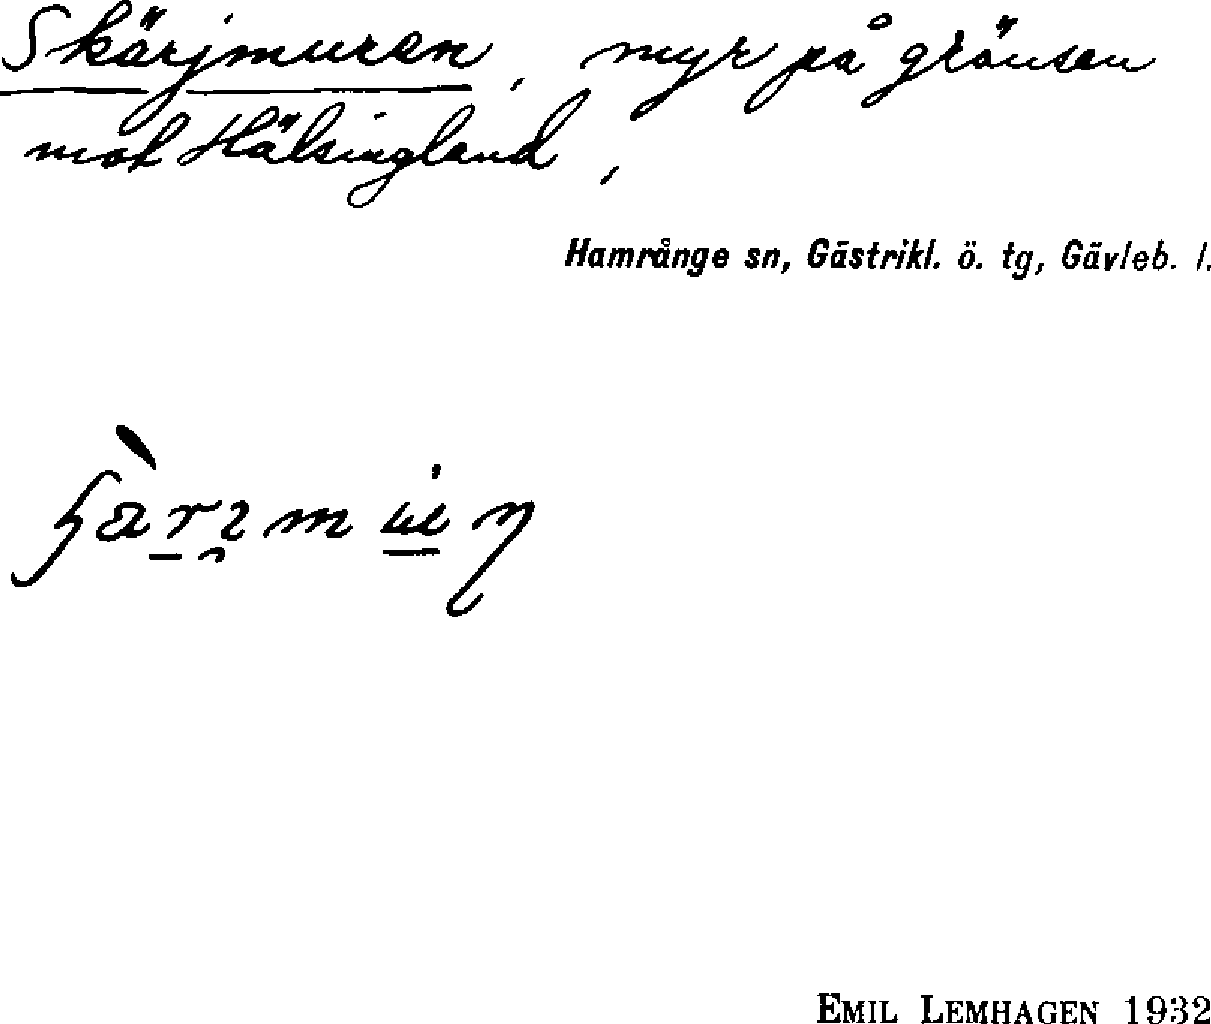 Skärjmuren, myr på gränsen
mot Hälsingland,
Hamrånge sn, Gästrikl. ö. tg, Gävleb. l.
EMIL LEMHAGEN 1932